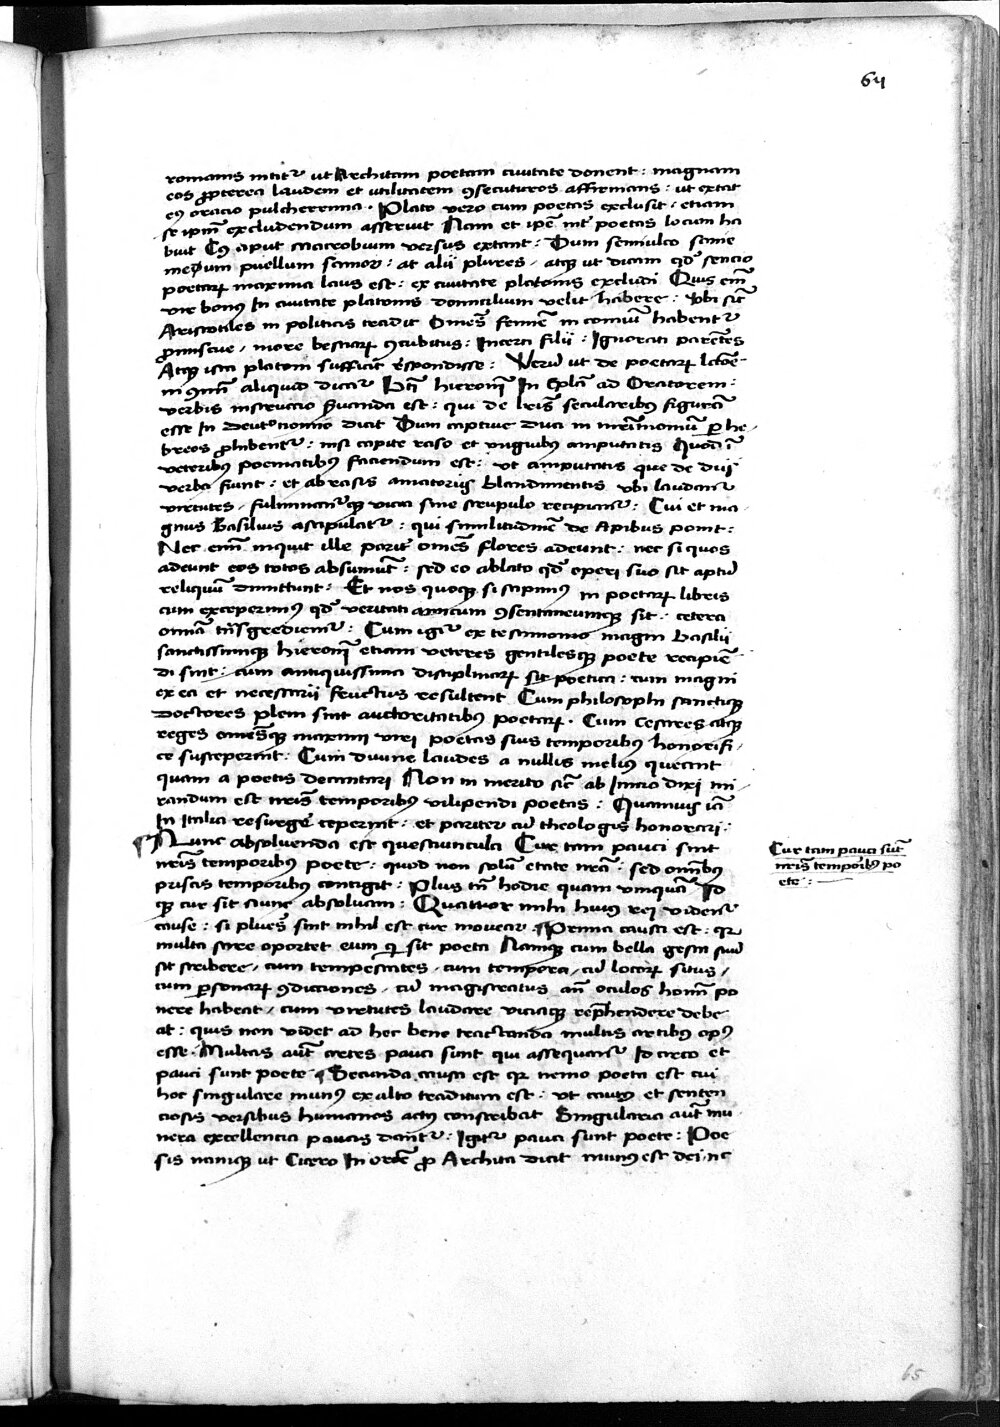 64
romanis nititr ut Architam poetam civitate donent : magnam
eos propterea laudem et utilitatem 9secuturos affirmans : ut extat
ei9 oracio pulcherrima · Plato vero cum poetas exclusit · etiam
se ipm̄ excludendum asseruit Nam et ipē int̄ poetas locum ha
buit Cui9 aput Macrobium versus extant : Dum semiulco
puellum : at alii plures · atq ut dicam qd sencio
poetarum maxima laus est : ex civitate platonis excludi Quis em̄
vir bonus In civitate platonis domicilium velit habere : Ubi sic̄
Aristotiles in politicis tradit Omēs femīe in comuni habentr
promiscue · more bestiarum 9cubitus : Incerti filii : Ignorati parētes
Atq ista platoni sufficiāt respondisse : Verū ut de poetarum lcōe
aliquid dicar hieronimi In ad Oratorem :
verbis instruccio est : qui de lrīs secularibus figurā
esse In deutonomio dicit Dum captive duci in mr̄imonium p he
breos prohibentr : nisi capite raso et unguibus amputatis Quod ī
veteribus poematibus faciendum est : ut amputatis que de divi
verba fiunt : et abrasis amatoriis blandimentis ubi laudantr
virtutes · fulminantrq vicia sine scrupulo recipiantr : Cui et ma
gnus Basilius astipulatr : qui similitudinē de Apibus ponit :
Nec em̄ inquit ille parit̄ omēs flores adeunt : nec si quos
adeunt eos totos absumūt : sed eo ablato qd operi suo sit aptū
reliquum dimittunt : Et nos quoq si sapim9 in poetarum libris
cum exceperim9 qd veritati amicum 9sentaneumq sit : cetera
omīa trn̄sgrediemr : Cum igr ex testimonio magni basilii
sanctissimiq hieronimi etiam veteres gentilesq poete recipiē
di sint : cum antiquissima disciplinarum sit poetica : cum magni
ex ea et necessarii fructus resultent Cum philosophi sanctiq
doctores pleni sint auctoritatibus poetarum · Cum Cesares atq
reges omēsq maximi viri poetas suis temporibus honorifi
ce susceperint : Cum divine laudes a nullis melius queant
quam a poetis decantari Non in merito sic̄ ab Inicio dixi mi
randum est nr̄is temporibus vilipendi poetas : Quamvis iā
In Italia resurgē ceperint : et pariter cū theologis honorari :
Nunc absolvenda est questiuncula Cur tam pauci sint
nr̄is temporibus poete : quod non solū etate nrā : sed omībus
priscis temporibus contigit : Plus tn̄ hodie quam unquā Id
q cur sit nunc absolvam : Quattuor mihi huius rei videntr
cause : si plures sint nihil est cur movear · Prima causa est : qr
multa scire oportet eum qui sit poeta Namq cum bella gesta
sit scribere · cum tempestates · cum tempora · cū locorum situs ·
cum personarum 9dicciones · cū magistratus an̄ oculos homīm po
nere habeat · cum virtutes laudare viciaq reprehendere debe
at : quis non videt ad hec bene tractanda multis artibus op9
esse · Multas aut̄ artes pauci sunt qui assequantr Id circo et
pauci sunt poete · Secunda causa est qr nemo poeta est cui
hoc singulare mun9 ex alto traditum est : ut et senten
ciosis versibus humanos act9 conscribat Singularia aut̄ mu
nera excellencia paucis dantr : Igitr pauci sunt poete : Poe
sis namq ut Cicero In orōe pro Archita dicit munus est dei ne
Cur tam pauci sūt
nr̄is temporibus po
ete :
65